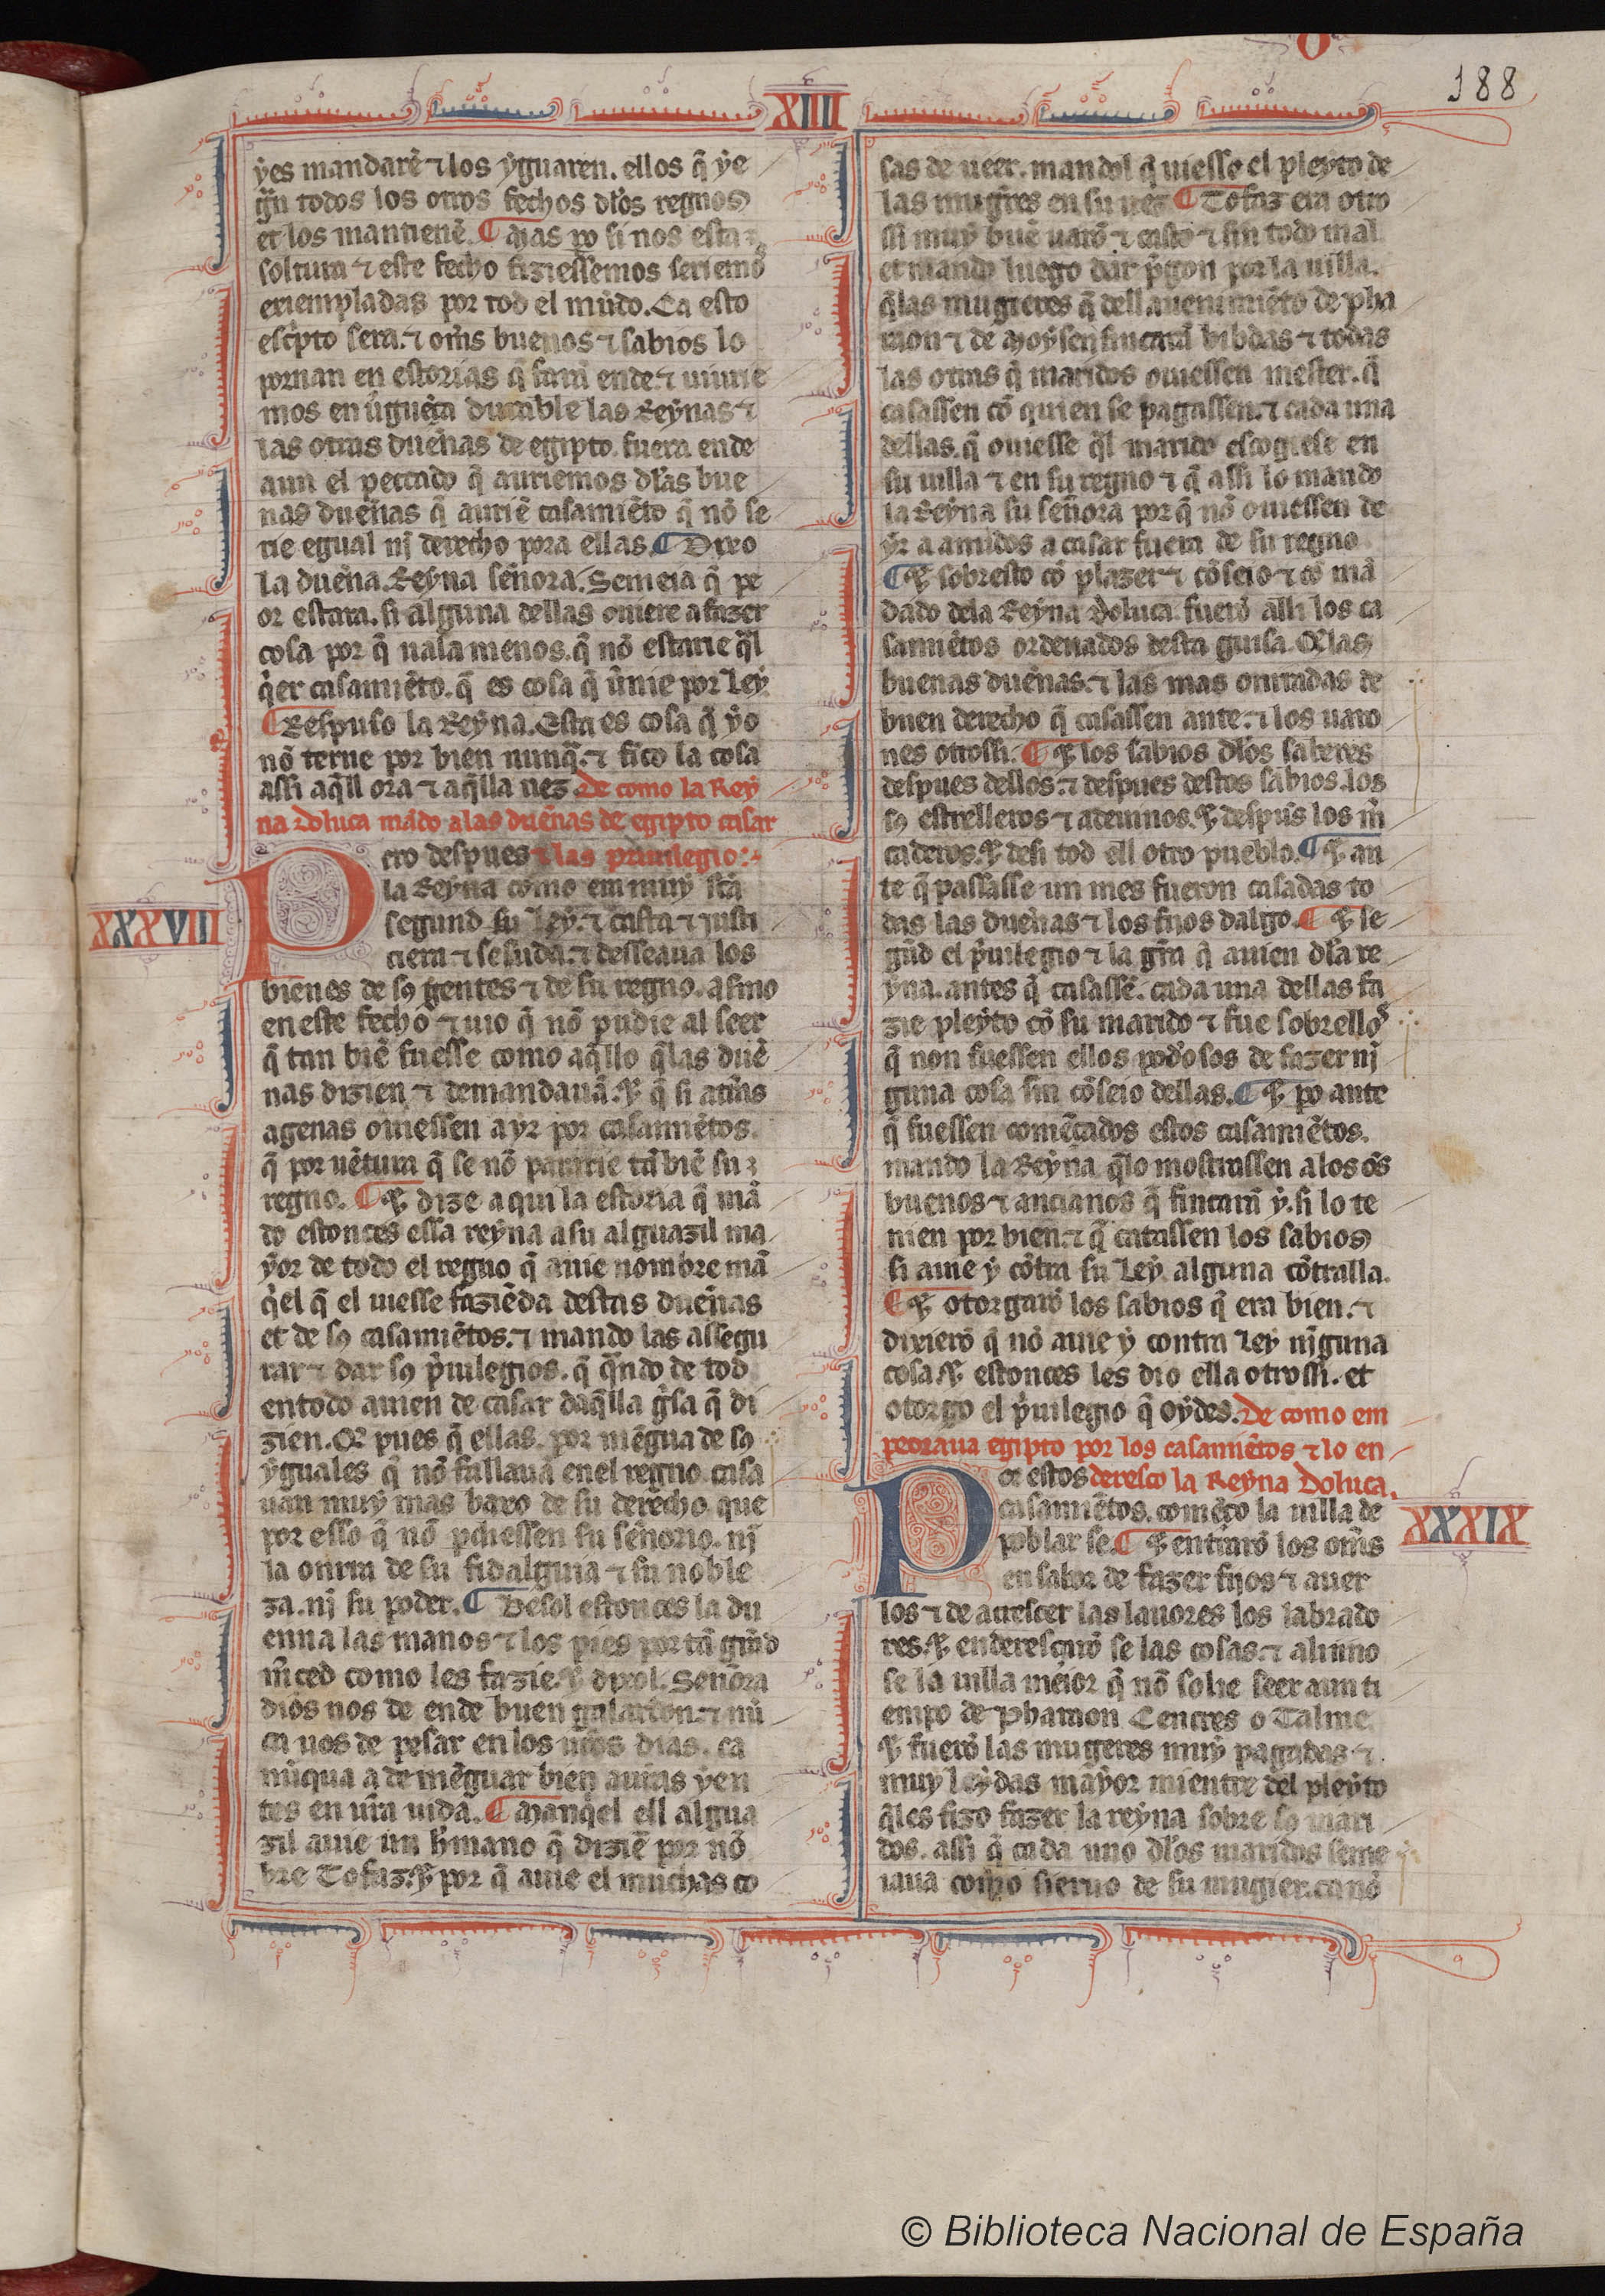 188
XIII
ẏes mandarẽ ⁊ los ẏguaren. ellos q̃ ẏe
gũ todos los otros fechos dl̃os regnos
et los mantienẽ. ¶ Mas ꝑo si nos esta
soltura ⁊ este fecho fiziessemos seriemos
exiempladas por tod el mũdo. Ca esto
escͥpto sera. ⁊ om̃s buenos ⁊ sabios lo
pornan en estorias q̃ faran ende. ⁊ uiurie
mos en ũguẽça durable las Reẏnas ⁊
las otras dueñas de egipto. fuera ende
aun el peccado q̃ auriemos dl̃as bue
nas dueñas q̃ auriẽ casamiẽto q̃ nõ se
rie egual nj̃ derecho pora ellas. ¶ Dixo
la dueña. Reẏna señora. Semeia q̃ pe
or estara. si alguna dellas ouiere a fazer
cosa por q̃ uala menos. q̃ nõ estarie q̃l
qͥer casamiẽto. q̃ es cosa q̃ ũnie por Leẏ
¶ Respuso la Reẏna. Esta es cosa q̃ ẏo
nõ terne por bien nunq̃. ⁊ finco la cosa
assi aq̃ll ora ⁊ aq̃lla uez. De como la Reẏ
na Doluca mãdo a las dueñas de egipto casar
ero despues ⁊ las priuilegio:-
XXXVIII
P
la Reẏna como era muẏ sc̃a
segund su Leẏ. ⁊ casta ⁊ justi
ciera ⁊ sesuda. ⁊ desseaua los
bienes de sꝯ gentes ⁊ de su regno. asmo
en este fecho ⁊ uio q̃ nõ pudie al seer
q̃ tan biẽ fuesse como aq̃llo q̃ las due
nas dizien ⁊ demandauã. ⁊ q̃ si a tr̃as
agenas ouiessen a ẏr por casamiẽtos.
q̃ por uẽtura q̃ se nõ pararie tã biẽ su
regno. ¶ ⁊ dize aqui la estoria q̃ mã
do estonces essa reẏna a su alguazil ma
ẏor de todo el regno q̃ auie nombre mã
qͥel q̃ el uiesse faziẽda destas dueñas
et de sꝯ casamiẽtos. ⁊ mando las assegu
rar ⁊ dar sꝯ p̃uilegios. q̃ qͣndo de tod
en todo auien de casar daq̃lla gͥsa q̃ di
zien. Or pues q̃ ellas. por mẽgua de sꝯ
ẏguales q̃ nõ fallauã en el regno. casa
uan muẏ mas baxo de su derecho que
por esso q̃ nõ ꝑdiessen su señorio. nj̃
la onrra de su fidalguia ⁊ su noble
za. nj̃ su poder. ¶ Besol estonces la du
enna las manos ⁊ los pies por tã grãd
m̃ced como les fazie. ⁊ dixol. Señora
dios nos de ende buen galardon. ⁊ nũ
ca uos de pesar en los ur̃os dias. ca
nũqua a de mẽguar bien a uras ẏen
tes en ur̃a uida. ¶ Manqͥel ell algua
zil auie un h̃mano q̃ dizie por nõ
bre Tofaz. ⁊ por q̃ auie el muchas co
sas de ueer. mandol q̃ uiesse el pleẏto de
las mug̃res en su uez ¶ Tofaz era otro
ssi muẏ buẽ uarõ ⁊ casto ⁊ sin todo mal
et mando luego dar p̃gon por la uilla.
q̃ las mugieres q̃ dell auenimiẽto de pha
raon ⁊ de Moẏsen fincarã bibdas ⁊ todas
las otras q̃ maridos ouiessen mester. q̃
casassen cõ quien se pagassen. ⁊ cada una
dellas. q̃ ouiesse q̃l marido escogiese en
su uilla ⁊ en su regno ⁊ q̃ assi lo mando
la Reẏna su señora por q̃ nõ ouiessen de
ẏr a amidos a casar fuera de su regno
¶ ⁊ sobresto cõ plazer ⁊ cõseio ⁊ cõ mã
dado dela Reẏna Doluca. fuerõ alli los ca
samiẽtos ordenados desta guisa. Q̃ las
buenas dueñas. ⁊ las mas onrradas de
buen derecho q̃ casassen ante. ⁊ los uaro
nes otrossi. ¶ ⁊ los sabios dl̃os saberes
despues dellos. ⁊ despues destos sabios. los
sꝯ estrelleros ⁊ ademinos. ⁊ despuꝰ los m̃
caderos. ⁊ desi tod ell otro pueblo. ¶ ⁊ an
te q̃ passasse un mes fueron casadas to
das las dueñas ⁊ los fijos dalgo. ¶ ⁊ se
gũd el p̃uilegio ⁊ la gr̃a q̃ auien dl̃a re
ẏna. antes q̃ casassẽ. cada una dellas fa
zie pleẏto cõ su marido ⁊ fue sobrellos
q̃ non fuessen ellos pod̃osos de fazer nj̃
guna cosa sin cõseio dellas. ¶ ⁊ ꝑo ante
q̃ fuessen comẽçados estos casamiẽtos.
mando la Reẏna q̃ lo mostrassen a los oꝰs
buenos ⁊ ancianos q̃ fincarã ẏ. si lo te
nien por bien. ⁊ q̃ catassen los sabios
si auie ẏ cõtra su Leẏ alguna cõtralla.
¶ ⁊ otorgarõ los sabios q̃ era bien. ⁊
dixierõ q̃ nõ auie ẏ contra Leẏ nj̃guna
cosa. ⁊ estonces les dio ella otrossi. et
otorgo el p̃uilegio q̃ oẏdes. De como em
peoraua egipto por los casamiẽtos ⁊ lo en
or estos deresço la Reẏna Doluca.
XXXIX
P
casamiẽtos. comẽço la uilla de
poblar se. ¶ ⁊ entrarõ los om̃s
en sabor de fazer fijos ⁊ auer
los ⁊ de acrescer las lauores los labrado
res. ⁊ enderesçarõ se las cosas. ⁊ alinno
se la uilla meior q̃ nõ solie seer aun ti
empo de Pharaon Cencres o Talme.
⁊ fuerõ las mugeres muẏ pagadas ⁊
muy leẏdas maẏor mientre del pleẏto
q̃ les fizo fazer la reẏna sobre sꝯ mari
dos. assi q̃ cada uno dl̃os maridos seme
iaua como sieruo de su mugier. ca nõ
© Biblioteca Nacional de España